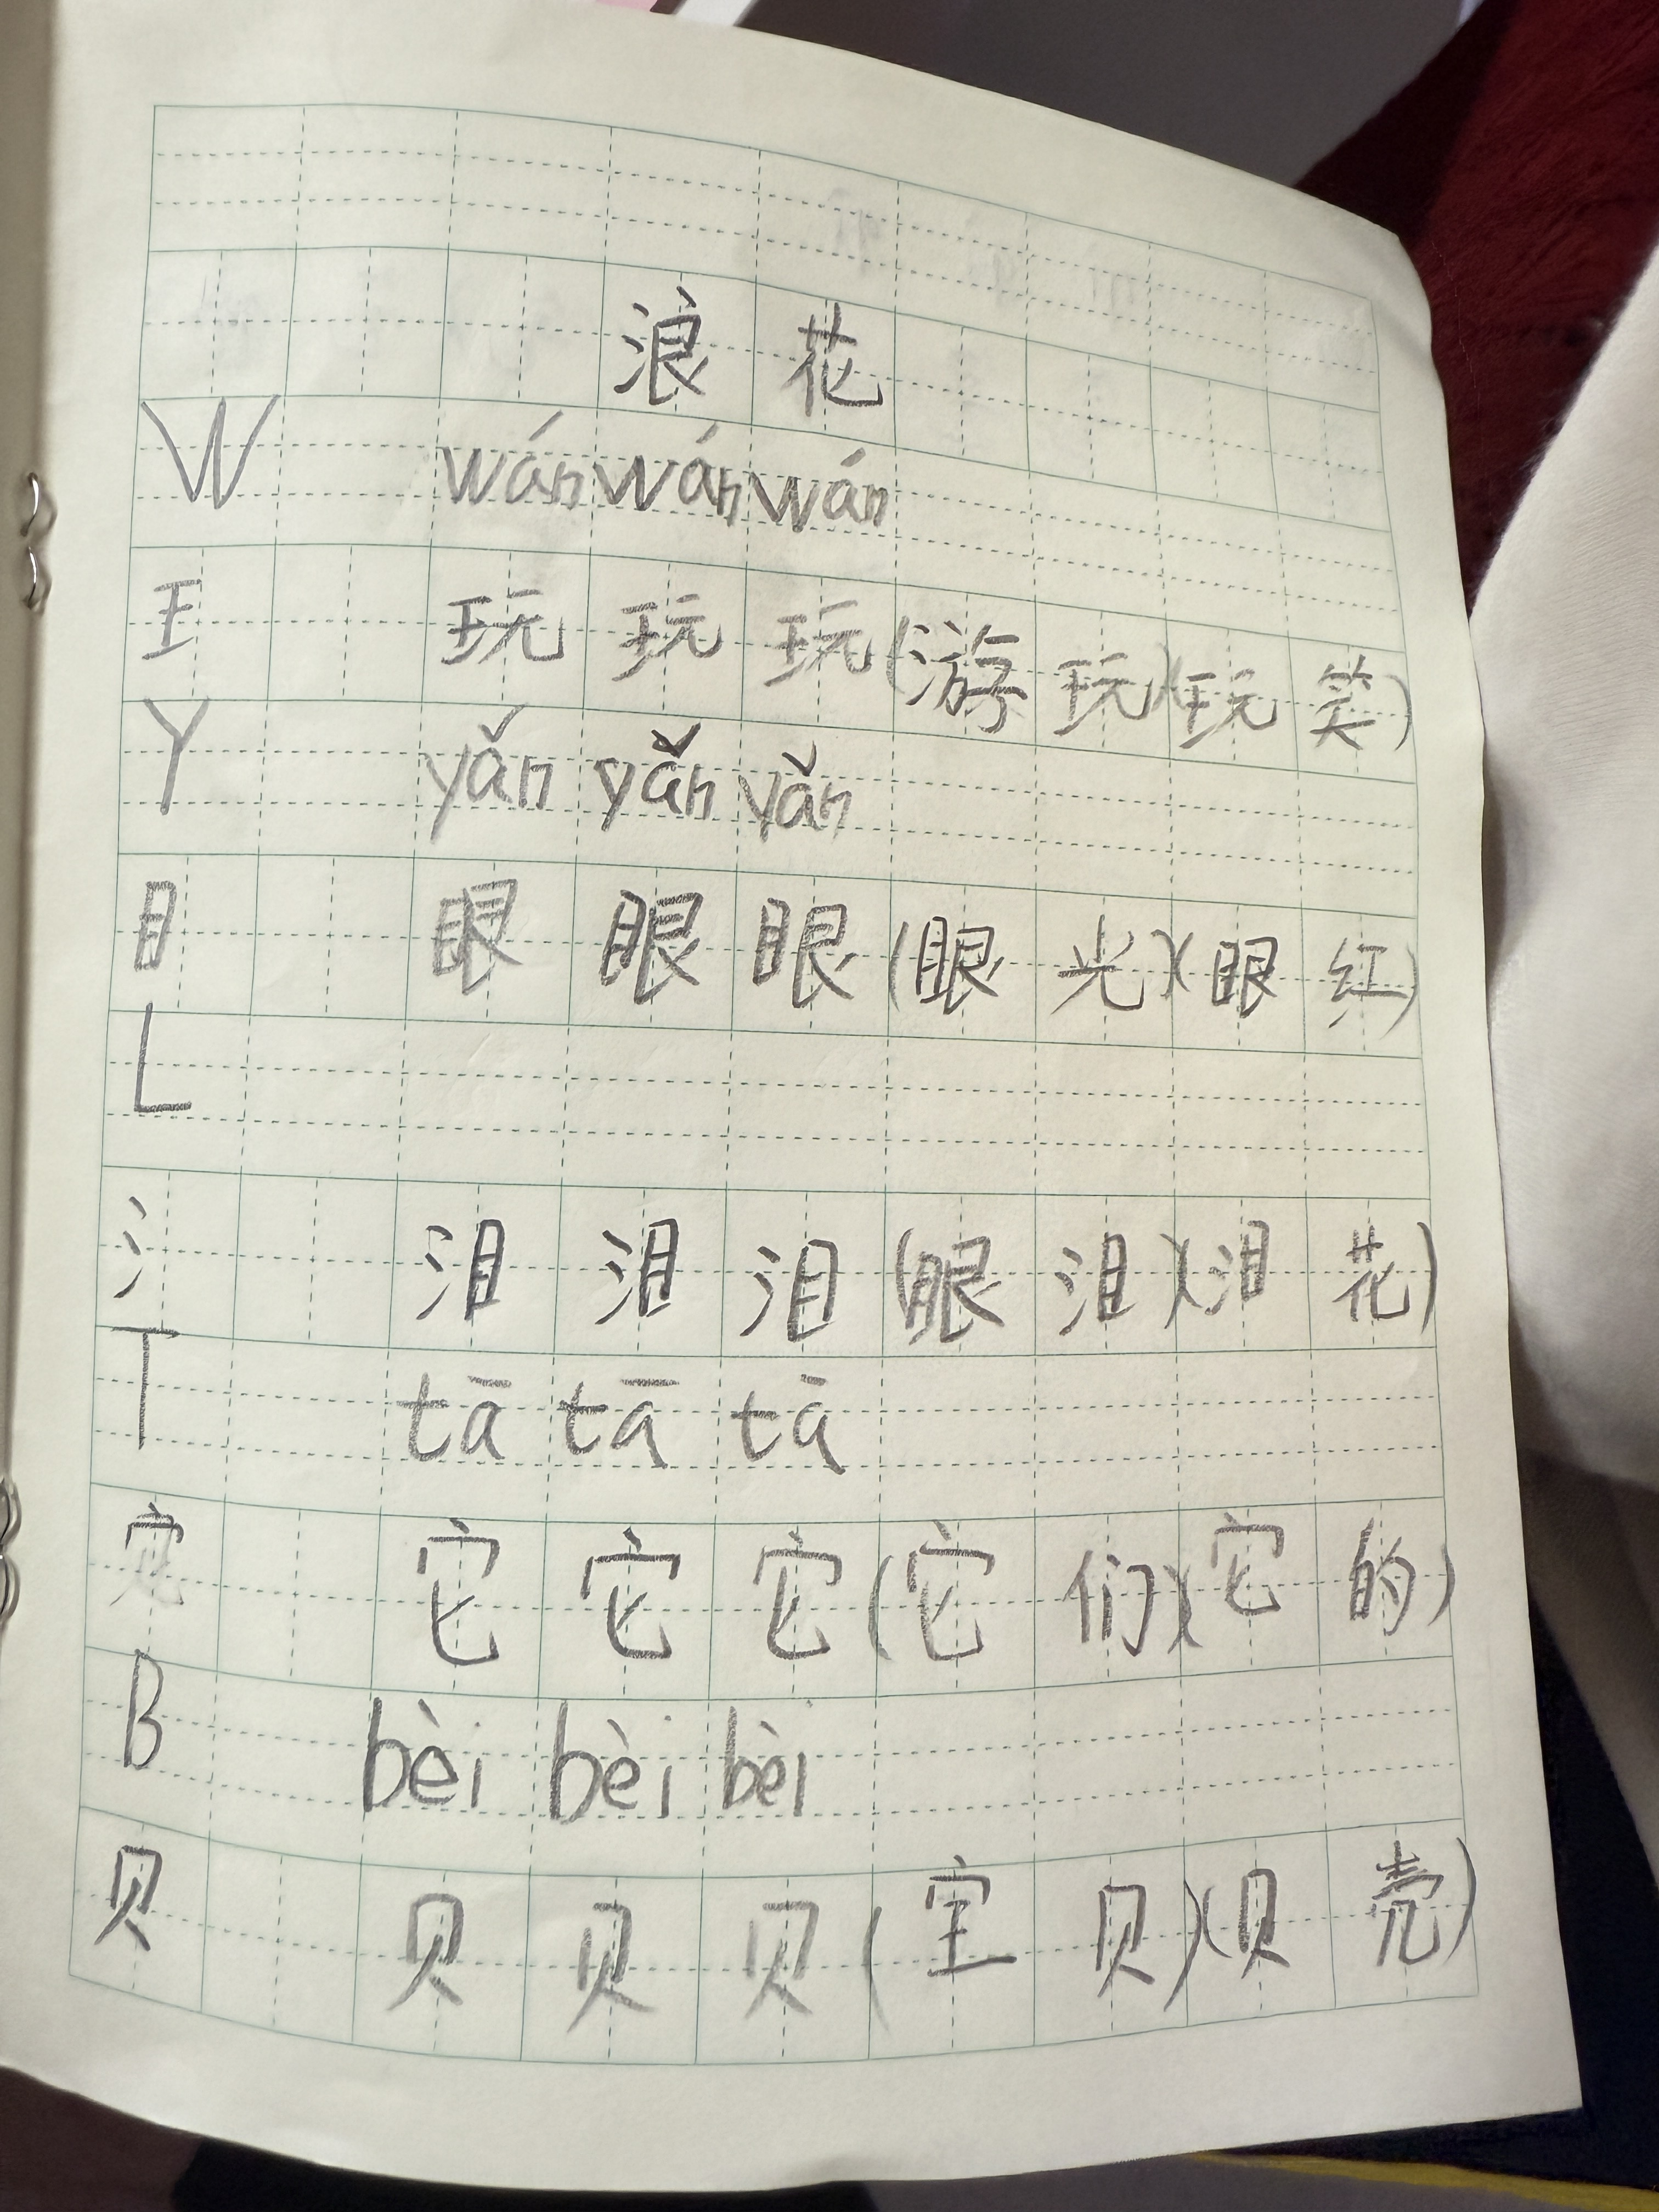 浪花
W wán wán wán
王 玩 玩 玩 (游玩)(玩笑)
Y yǎn yǎn yǎn
目 眼 眼 眼 (眼光)(眼红)
L
氵 泪 泪 泪 (眼泪)(泪花)
T tā tā tā
宀 它 它 它 (它们)(它的)
B bèi bèi bèi
贝 贝 贝 贝 (宝贝)(贝壳)